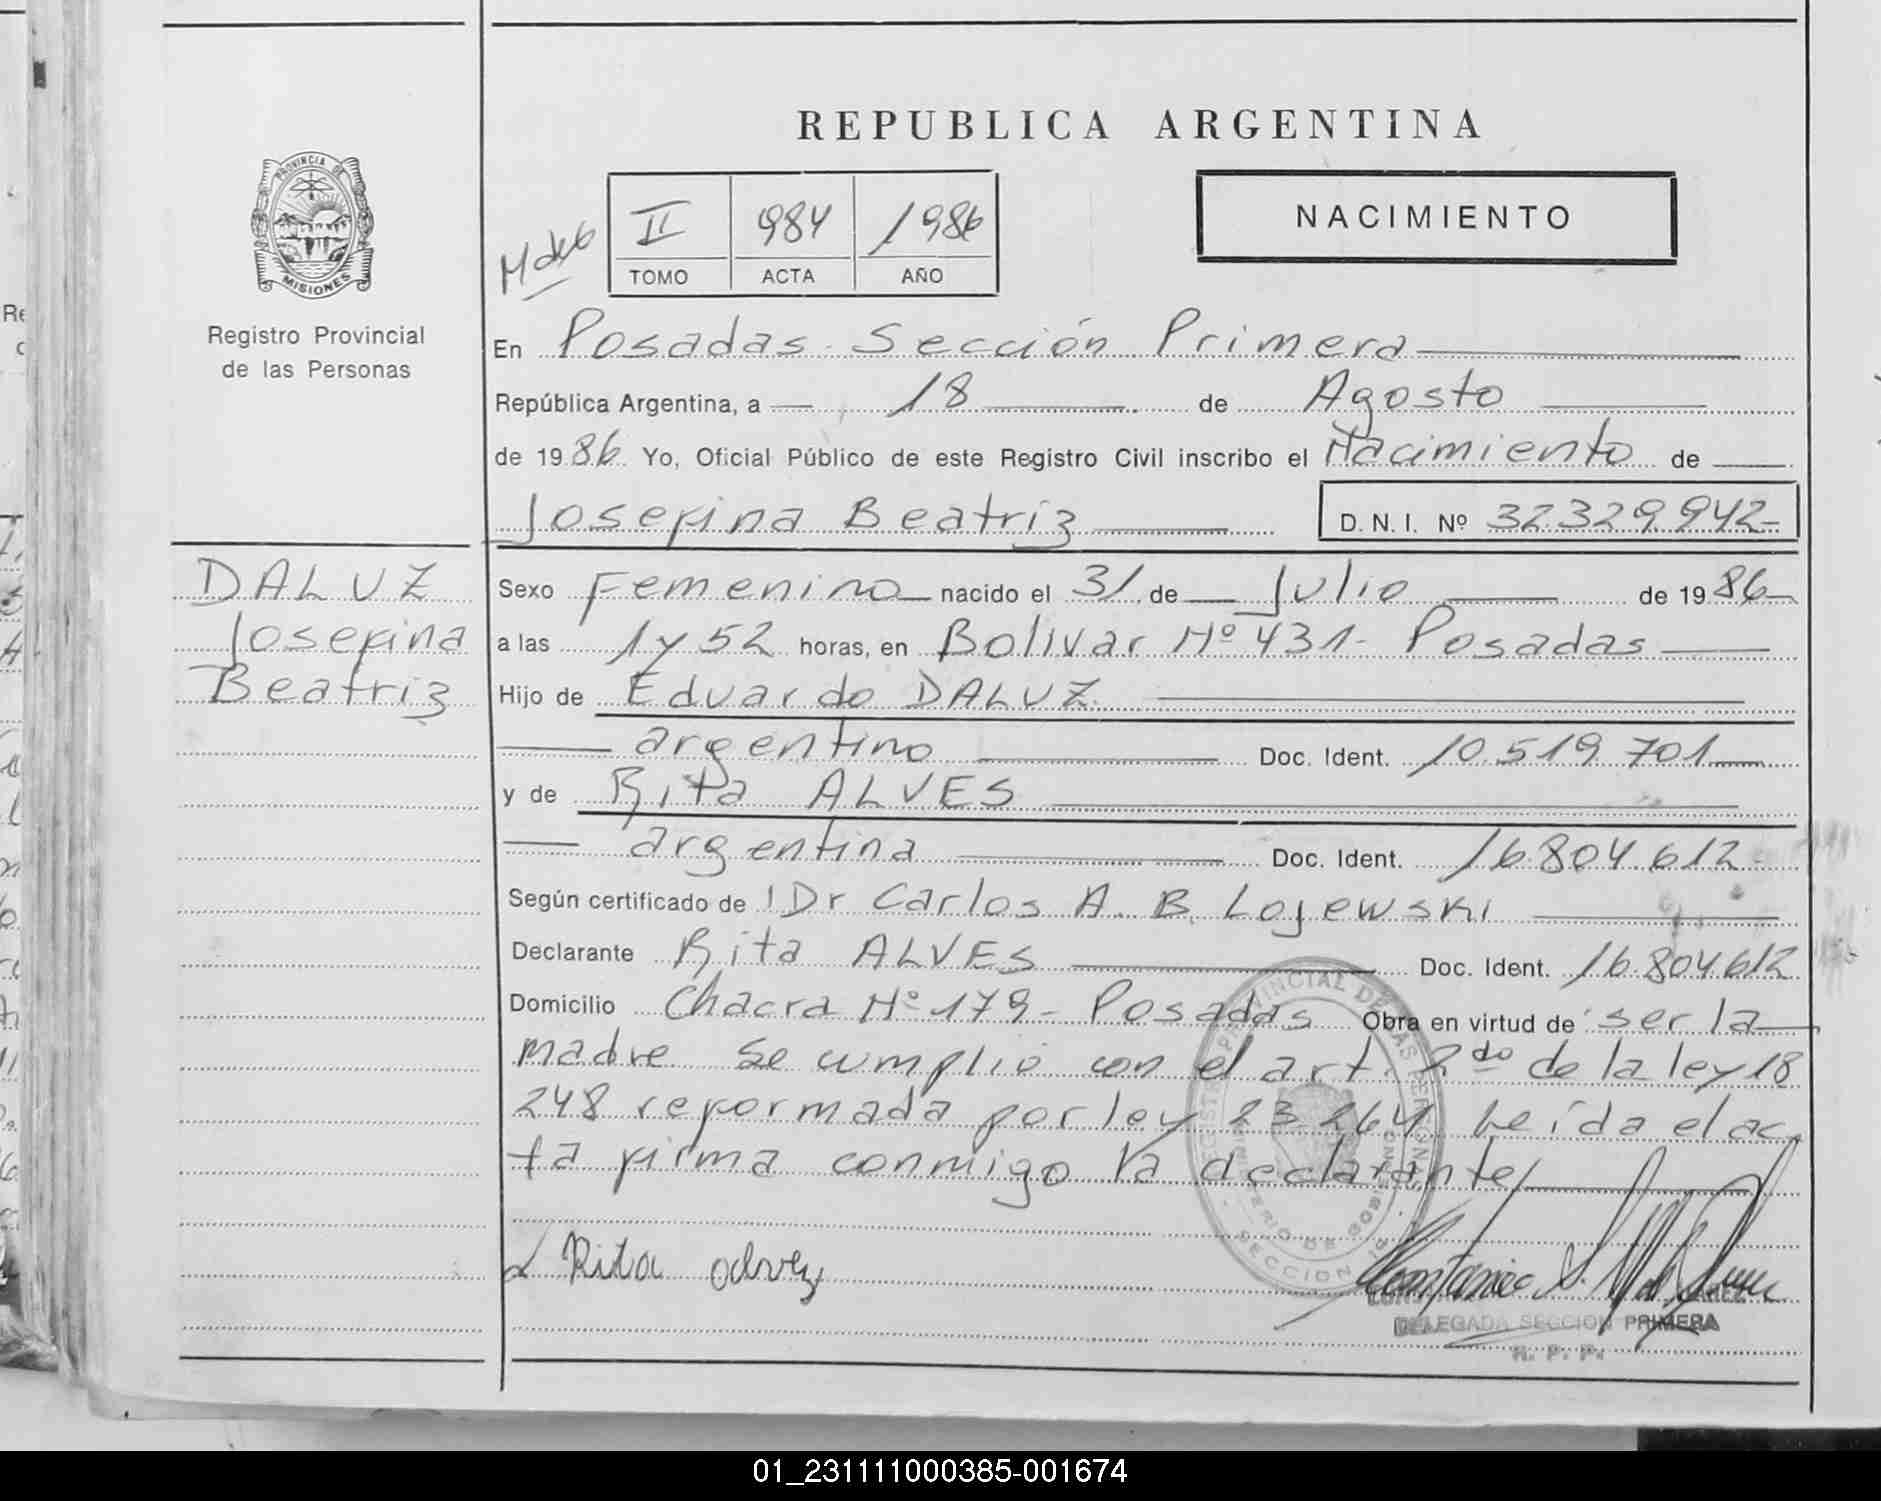 REPUBLICA ARGENTINA
PROVINCIA DE MISIONES
Registro Provincial
de las Personas
II 984 1986
TOMO ACTA AÑO
NACIMIENTO
En Posadas - Sección Primera
República Argentina, a 18 de Agosto
de 1986 Yo, Oficial Público de este Registro Civil inscribo el Nacimiento de
Josefina Beatriz D.N.I. Nº 32.329.942-
DALUZ
Josefina
Beatriz
Sexo Femenino nacido el 31 de Julio de 1986
a las 1 y 52 horas, en Bolivar Nº 431- Posadas
Hijo de Eduardo DALUZ
argentino Doc. Ident. 10.519.701
y de Rita ALVES
argentina Doc. Ident. 16.804.612-
Según certificado de Dr Carlos A. B. Lojewski
Declarante Rita ALVES Doc. Ident. 16.804.612
Domicilio Chacra Nº 179 - Posadas Obra en virtud de ser la
madre se cumplió con el art. 2do de la ley 18
248 reformada por ley 23.264 Leída el ac
ta firma conmigo la declarante
REGISTRO PROVINCIAL DE LAS PERSONAS
MINISTERIO DE GOBIERNO
SECCION 1ª
Rita alvez
DELEGADA SECCION PRIMERA
R. P. P.
01_231111000385-001674